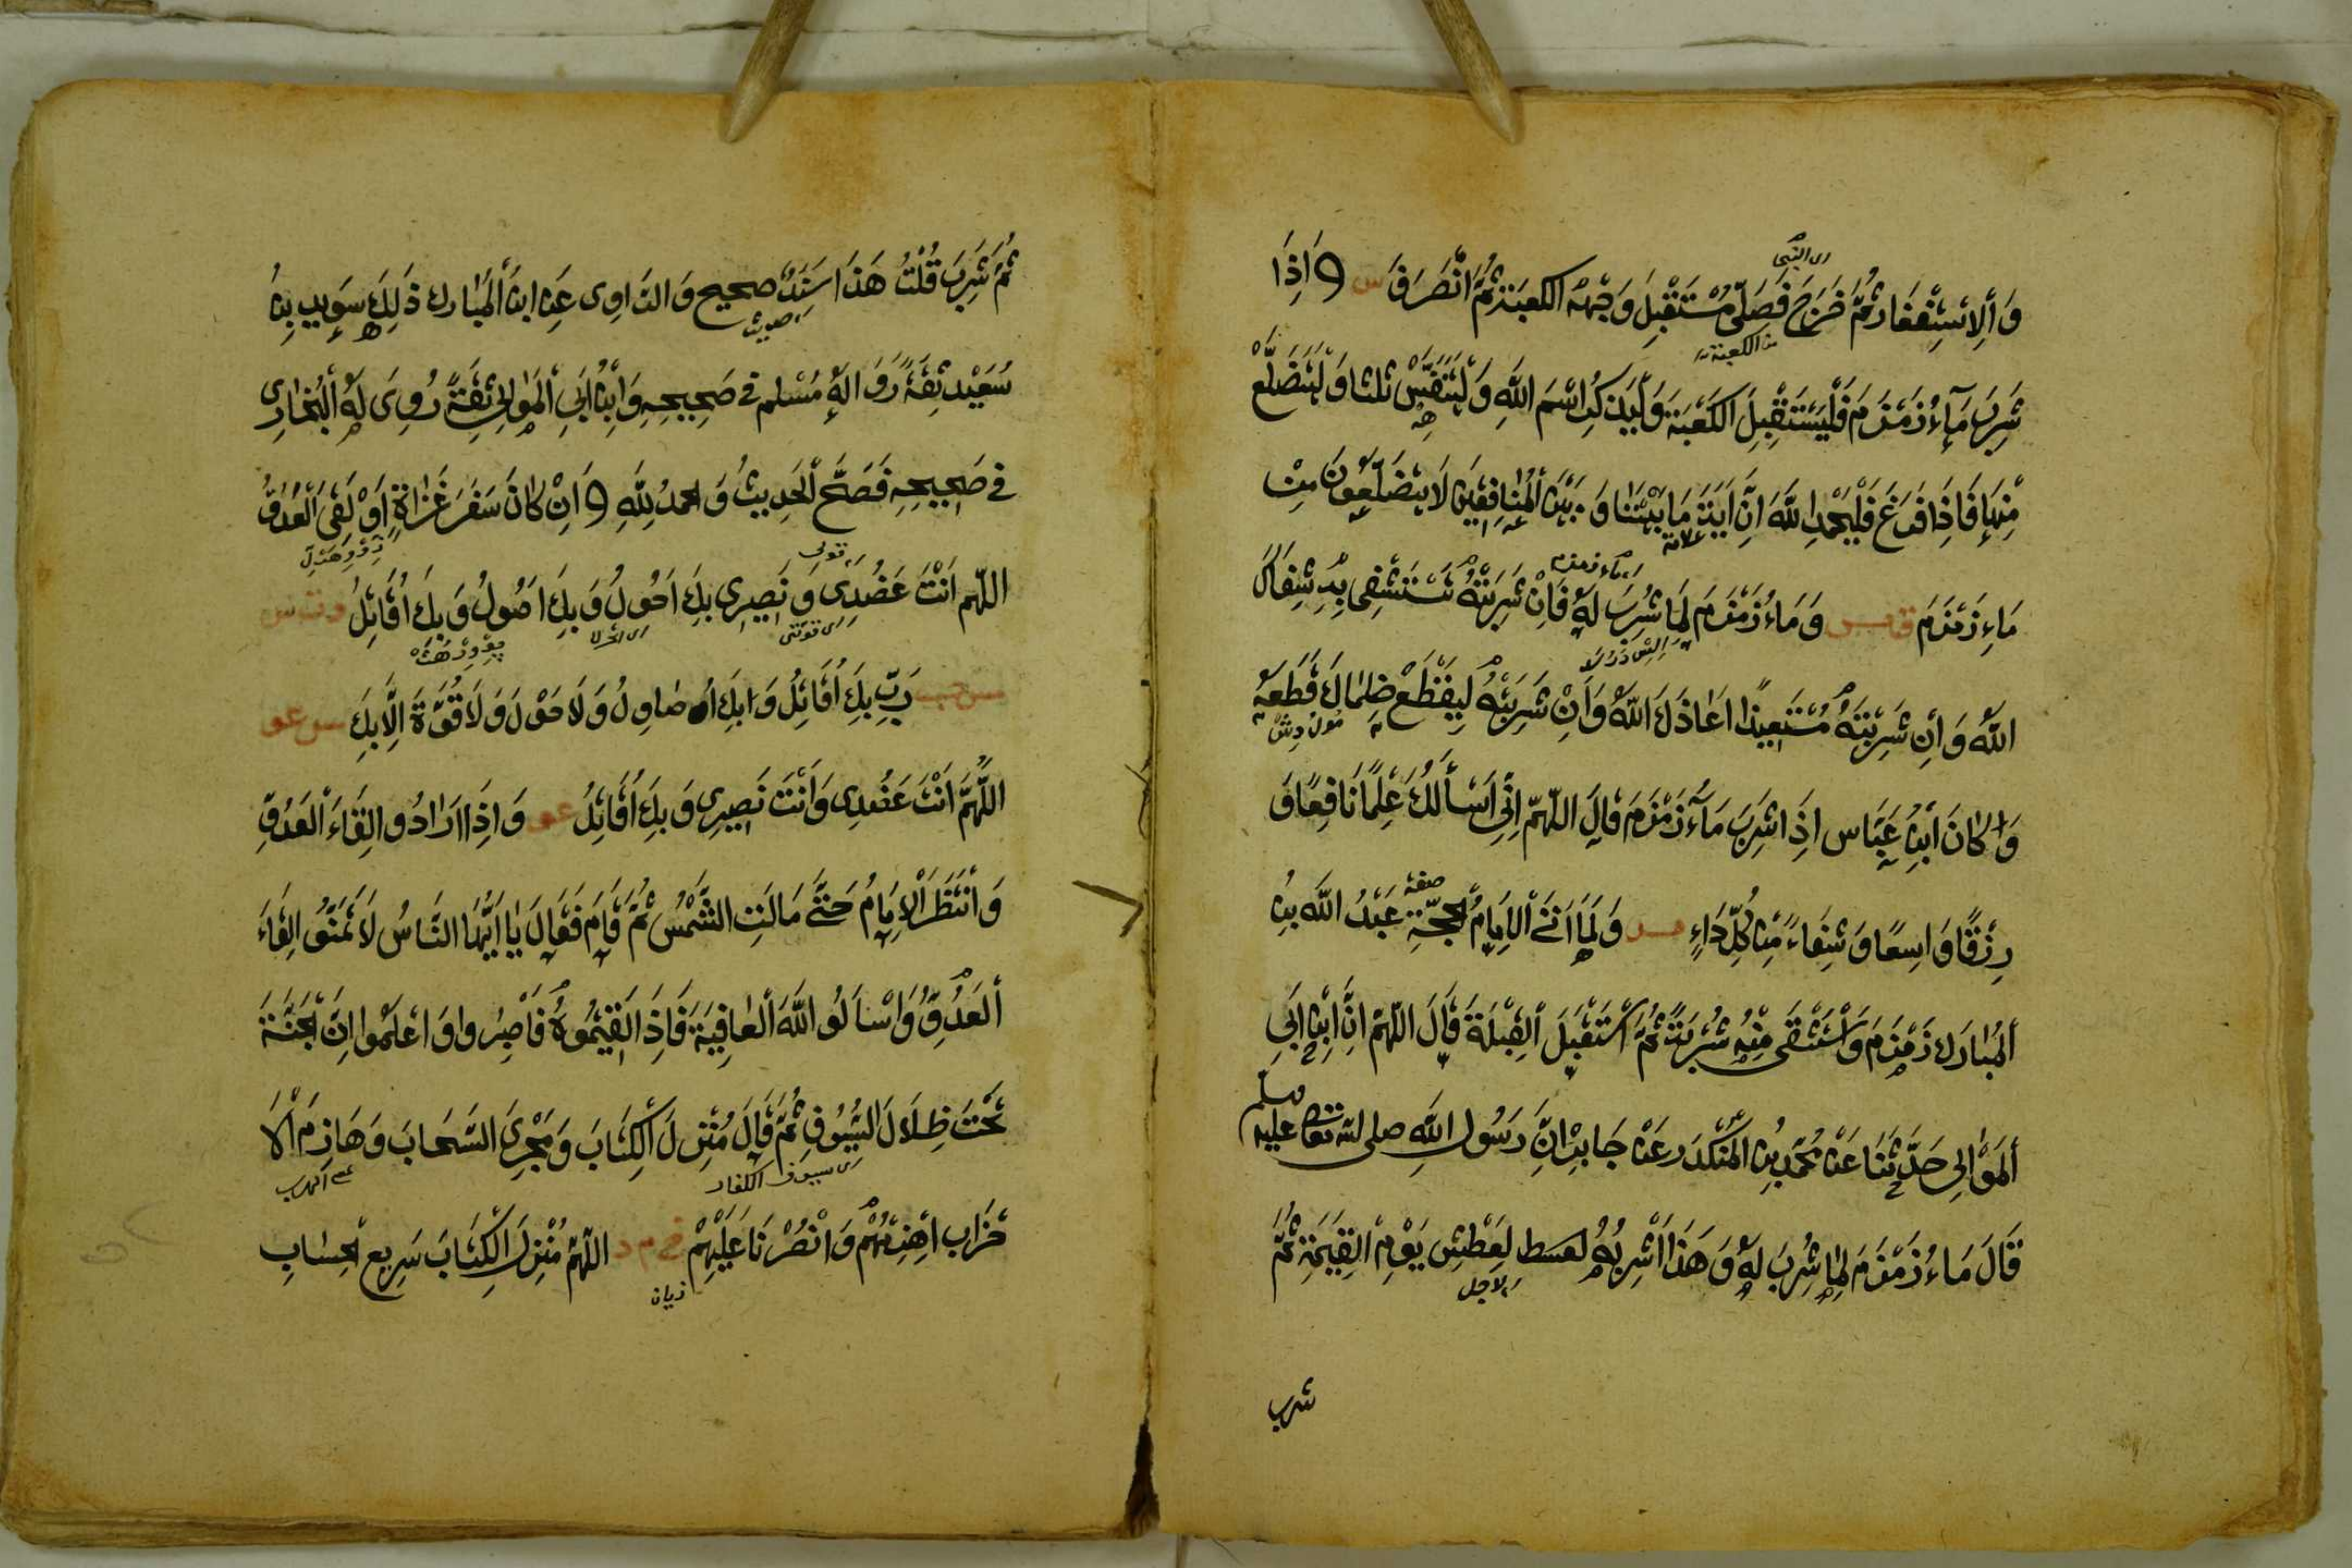 ای النبی
وَالِاسْتِغْفَار ثُمَّ خَرَجَ فَصَلّٰی مُسْتَقْبِلَ وَجْهِ الکعبَة ثُمَّ انْصَرَفَ س و اِذَا
من الکعبة
شَرِبَ مَآءُ زَمْزَمَ فَلْیَسْتَقْبِلَ الکَعْبَةَ وَلْیَذکُرِ اسْمَ اللّٰهِ وَلْیَتَنَفَّسْ ثلثا وَلْیَتَضَلَّعْ
مِنْهَا فَاِذَا فَرَغَ فَلْیَحْمَدِ اللّٰهَ اِنَّ اٰیَةَ مَا بَیْنَنَا وَبَیْنَ الْمُنَافِقِیْنَ لَا یَتَضَلَّعُوْنَ مِنْ
علامة
ماء زمزم
مَاءِ زَمْزَمَ ق مس وَمَاءُ زَمْزَمَ لِمَا شُرِبَ لَهٗ فَاِنْ شَرِبْتَهٗ تَسْتَشْفِی بِهٖ شِفَاكَ
اللّٰهُ وَاِنْ شَرِبْتَهٗ مُسْتَعِیذًا اَعَاذَكَ اللّٰهُ وَاِنْ شَرِبْتَهٗ لِیَقْطَعْ ظَمَاكَ قَطَعَهٗ
وَاِ کَانَ ابْنُ عَبَّاس اِذَا شَرِبَ مَآءَ زَمْزَمَ قَالَ اللّٰهمّ اِنِّی اَسْأَلُكَ عِلْمًا نَافِعًا وَ
صفة
رِزْقًا وَاسِعًا وَشِفَاءً مِنْ کُلِّ دَاءٍ مس وَلَمَّا اَتَی الْاِمَامُ الْحُجَّةِ عَبْدُ اللّٰه بْنُ
الْمُبَارَك زَمْزَمَ وَاسْتَسْقٰی مِنْهُ شُرْبَةً ثُمَّ اسْتَقْبَلَ الْقِبْلَةَ قَالَ اللّٰهمّ اِنَّ ابْنَ اَبِی
الْمَوَالِی حَدَّثَنَا عَنْ مُحَمَّدِ بْنِ الْمُنْکَدَر عَنْ جَابِر اَنَّ رَسُول اللّٰهِ صلی الله تعالی علیه وسلم
قَالَ مَاءُ زَمْزَمَ لِمَا شُرِبَ لَهٗ وَهٰذَا اَشْرِبُهٗ لِعَطْشِ یَوْمِ الْقِیٰمَةِ ثُمَّ
لاجل
شرب
ثُمَّ شَرِبَ قُلْتُ هَذَا سَنَدٌ صحیح وَالرَّاوِی عَنِ ابن الْمُبَارك ذَلِكَ سوید بْنُ
حدیث
سُعَیْد ثِقَةٌ رَوَا لَهٗ مُسْلم فی صَحِیحِهٖ وَابْنُ اَبِی الْمَوَالِی ثِقَةٌ رُوِیَ لَهٗ الْبُخَارِی
فی صَحِیحِهٖ فَصَحَّ الْحَدِیثُ وَالحمدُ لِلّٰهِ و اِنْ کَانَ سَفَرَ غَزَاةٍ اَوْ لَقِیَ الْعَدُوَّ
قوتی
اللّٰهم اَنْتَ عَضُدِی وَنَصِیرِی بِكَ اَحُولُ وَبِكَ اَصُولُ وَبِكَ اُقَاتِلُ د ت س
ای قوتی
مس حب رَبِّ بِكَ اُقَاتِلُ وَبِكَ اُصَاوِلُ وَلَا حَوْلَ وَلَا قُوَّةَ اِلَّا بِكَ س عو
اللّٰهُمَّ اَنْتَ عَضُدِی وَاَنْتَ نَصِیرِی وَبِكَ اُقَاتِلُ عو وَاِذَا اَرَادُوا لِقَاءَ الْعَدُوِّ
وَانْتَظَرَ الْاِمَامُ حَتَّی مَالَتِ الشَّمْسُ ثُمَّ قَامَ فَقَالَ یَا اَیُّهَا النَّاسُ لَا تَمَنَّوْ الِقَاءَ
الْعَدُوِّ وَاسْاَلُو اللّٰهَ الْعَافِیَةَ فَاِذَا لَقِیْتُمُوهُ فَاصْبِرُوا وَاعْلَمُوا اِنَّ الْجَنَّةَ
تَحْتَ ظِلَالَ السُّیُوْفِ ثُمَّ قَالَ مُنْزِلَ الْکِتَابَ وَمُجْرِیَ السَّحَابَ وَهَازِمَ الْا
ای سیوف الکفار
حْزَاب اهْزِمْهُمْ وَانْصُرْنَا عَلَیْهِمْ خ م د اللّٰهمّ مُنْزِلَ الْکِتَابَ سَرِیع الْحِسَابِ